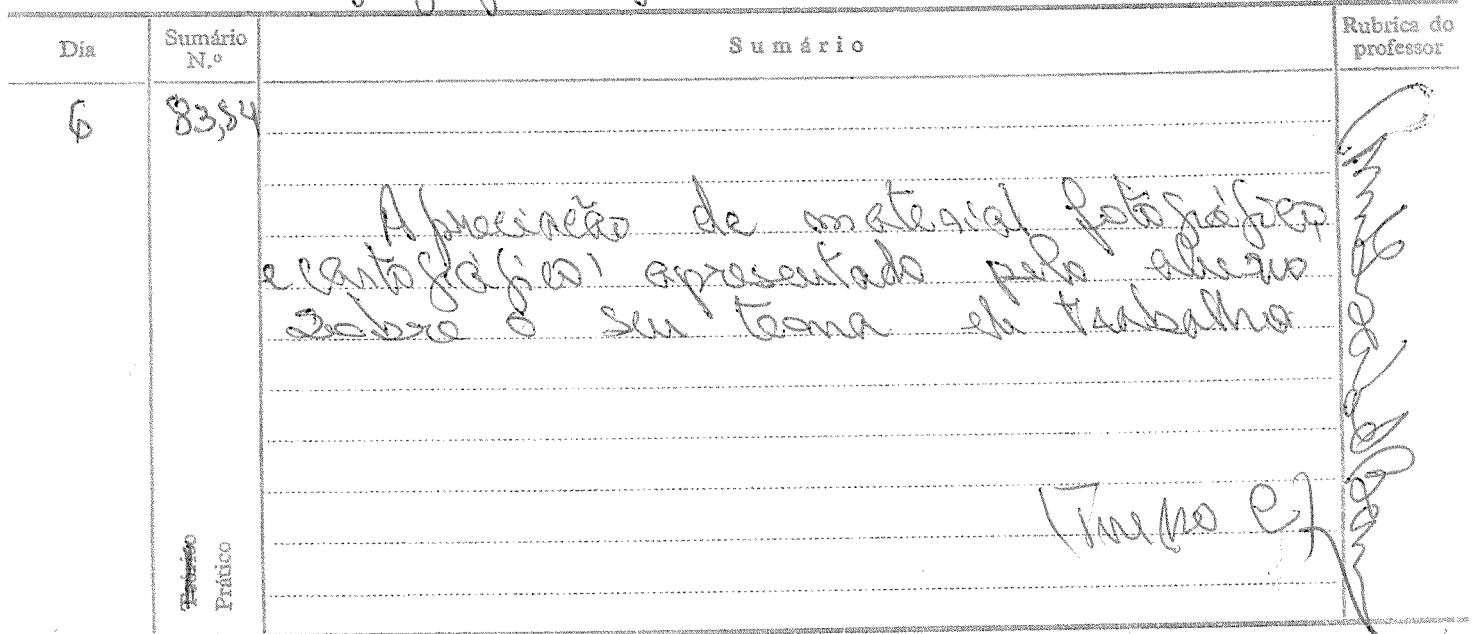 Dia
Sumário N.º
Sumário
Rubrica do professor
6
83,84
Apreciação de material fotográfico
e cartográfico apresentado pelo aluno
sobre o seu tema de trabalho
Turno C
Teórico
Prático